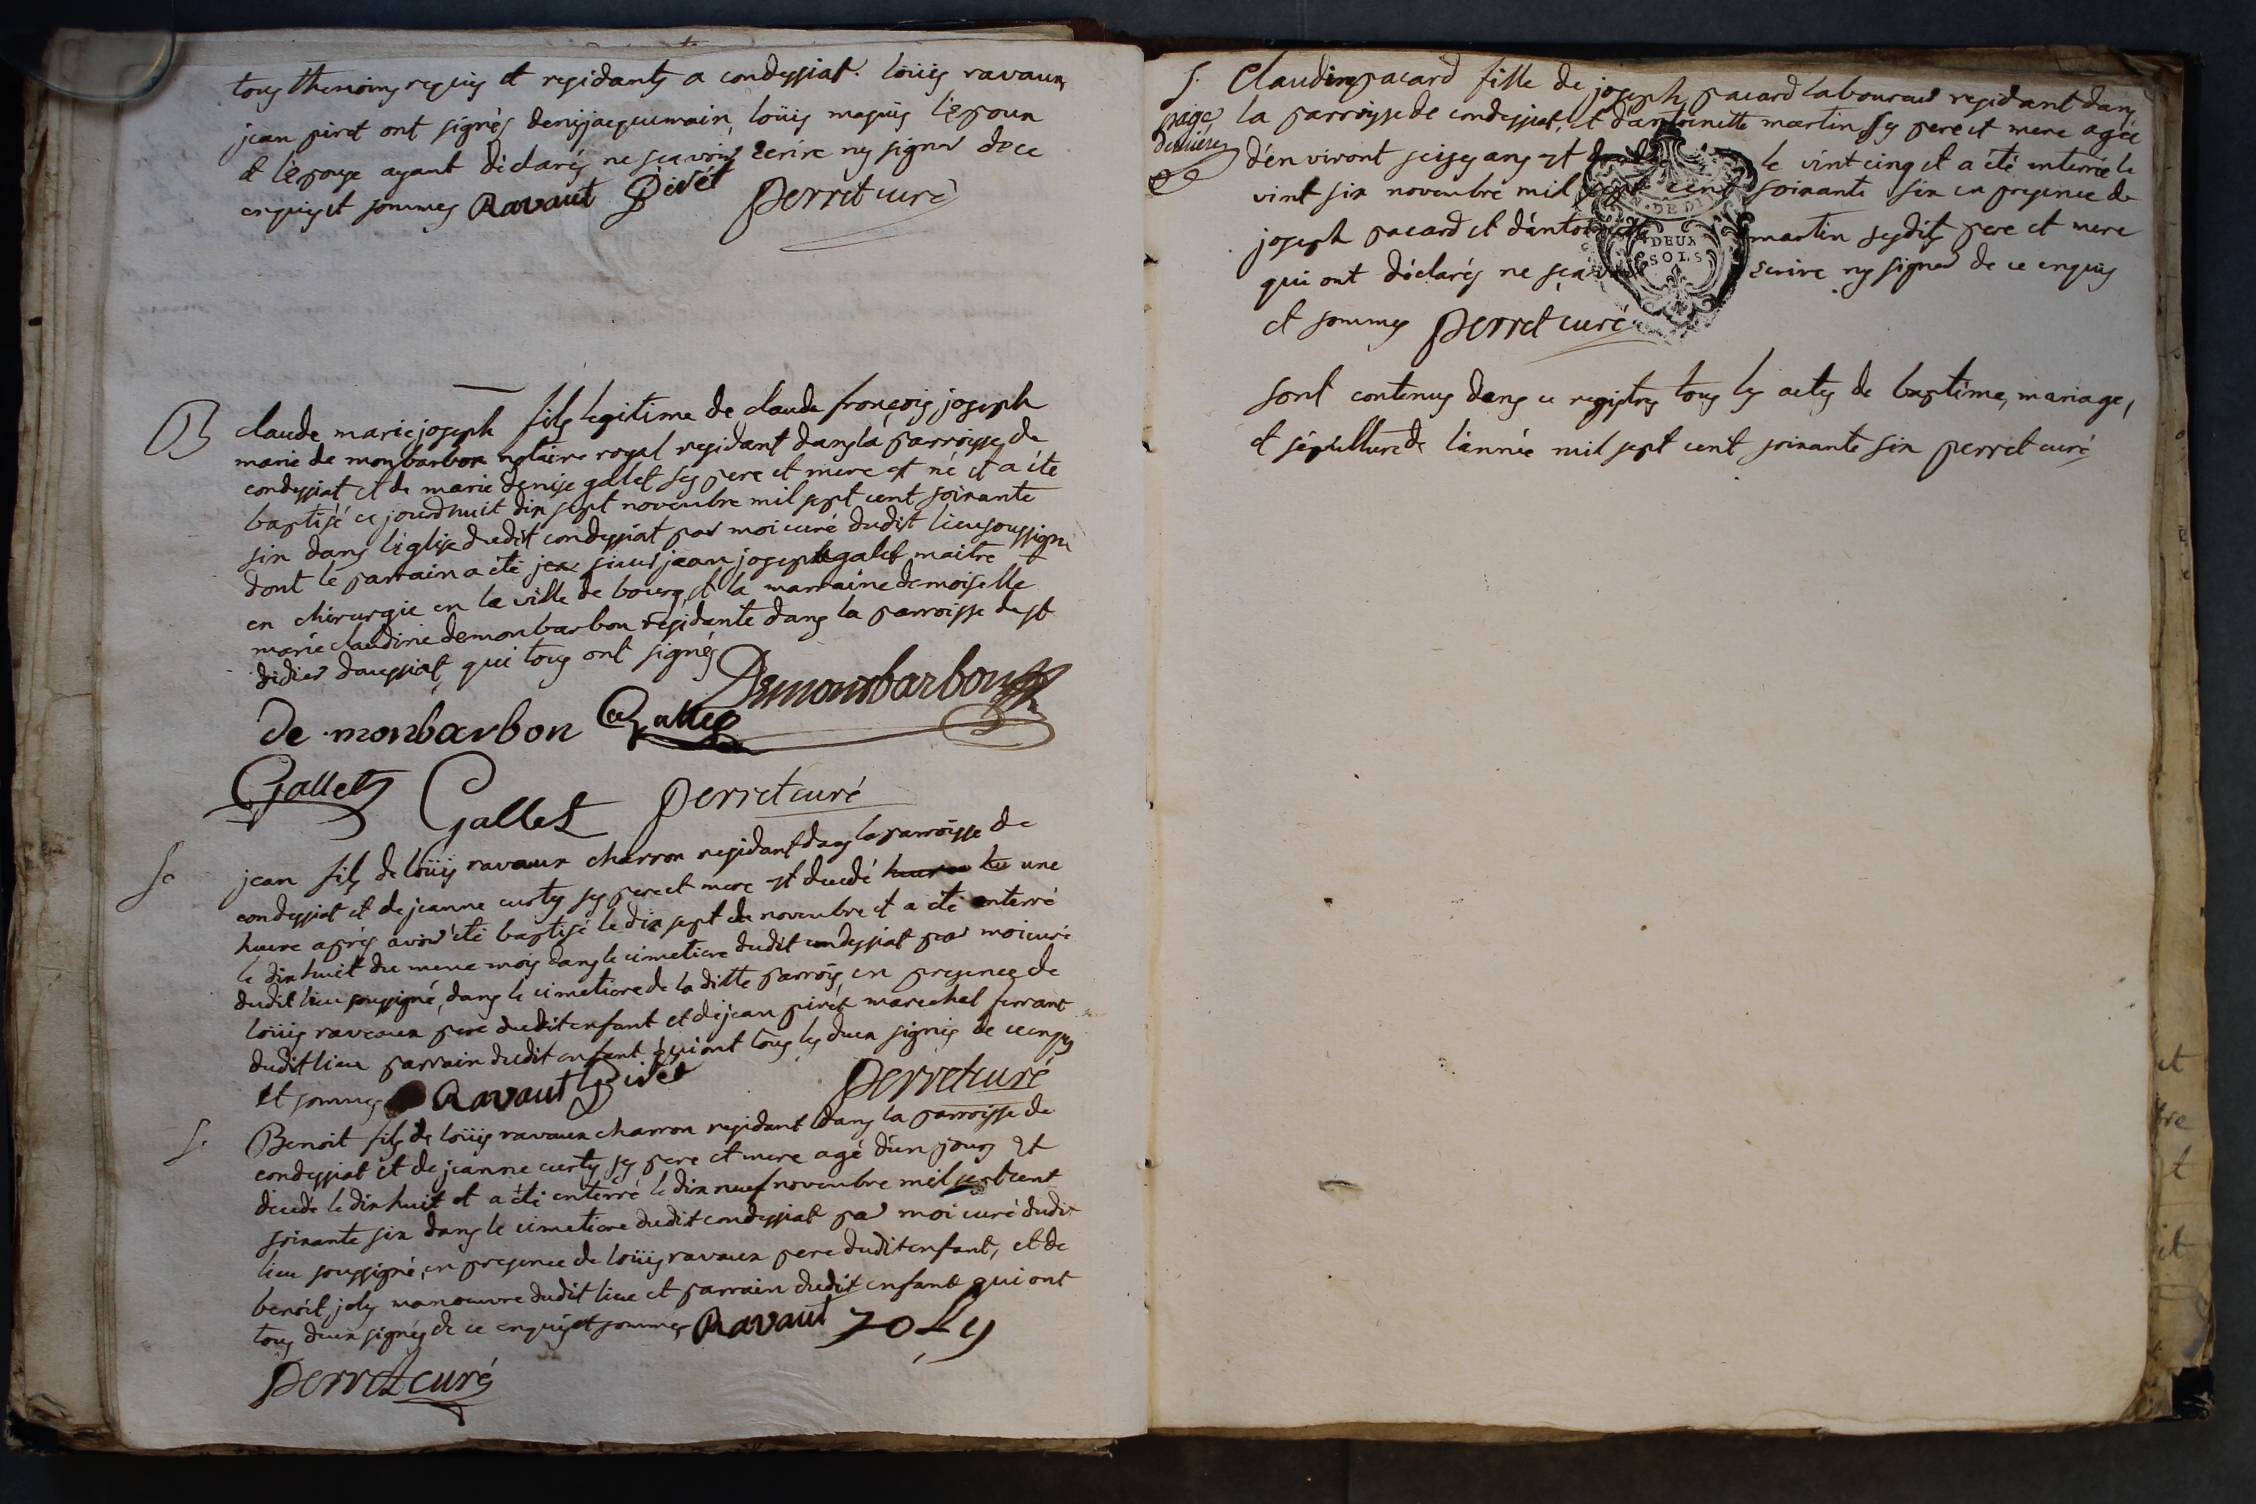 tous themoins requis et residants a condeyssiat. loüis ravaux
jean piret ont signés denis jacquemain, loüis maguis l'epoux
et l'epouse ayant déclarés ne scavoir ecrire ny signer de ce
enquis et sommes Ravaut Pirét perret curé
B claude marie joseph fils legitime de claude françois joseph
marie de monbarbon notaire royal residant dans la parroisse de
condeyssiat et de marie denise gallet ses pere et mere est né et a été
baptisé ce jourdhuit dix sept novembre mil sept cent soixante
six dans l'église dudit condeyssiat par moi curé dudit lieu soussigné
dont le parrain a été sieur jean joseph galet maitre
en chirurgie en la ville de bourg, et la marraine demoiselle
marie claudine demonbarbon residante dans la parroisse de st
didier daussiat qui tous ont signés
Demonbarbon
de monbarbon Gallet
Gallet Gallet perret curé
S. jean fils de loüis ravaux charron residant dans la parroisse de
condeyssiat et de jeanne curty ses pere et mere est decedé une
heure aprés avoir été baptisé le dix sept de novembre et a été enterré
le dix huit du meme mois dans le cimetiere dudit condeyssiat par moi curé
dudit lieu soussigné, dans le cimetiere de la ditte parrois, en presence de
loüis raveaux pere dudit enfant et de jean pirét marechal ferrant
dudit lieu parrain dudit enfant qui ont tous les deux signés de ce enquis
et sommes Ravaut Pirét perret curé
S. Benoit fils de loüis ravaux charron residant dans la parroisse de
condeyssiat et de jeanne curty ses pere et mere agé d'un jour est
decedé le dix huit et a été enterré le dix neuf novembre mil sept cent
soixante six dans le cimetiere dudit condeyssiat par moi curé dudit
lieu soussigné, en presence de loüis ravaux pere dudit enfant, et de
benoit joly manoeuvre dudit lieu et parrain dudit enfant qui ont
tous deux signés de ce enquis et sommes Ravaut JOLy
perret curé
S. Claudine pacard fille de joseph pacard laboureur residant dans
page la parroisse de condeyssiat, et d'antoinette martin ses pere et mere agée
derniere d'environt seises ans est le vint cinq et a été enterrée le
vint six novembre mil sept cent soixante six en presence de
joseph pacard et d'antoinette martin sesdits pere et mere
qui ont déclarés ne scavoir ecrire ny signer de ce enquis
et sommes perret curé
DEUX
SOLS
sont contenus dans ce registres tous les actes de baptême, mariage,
et sépulture de l'année mil sept cent soixante six perret curé